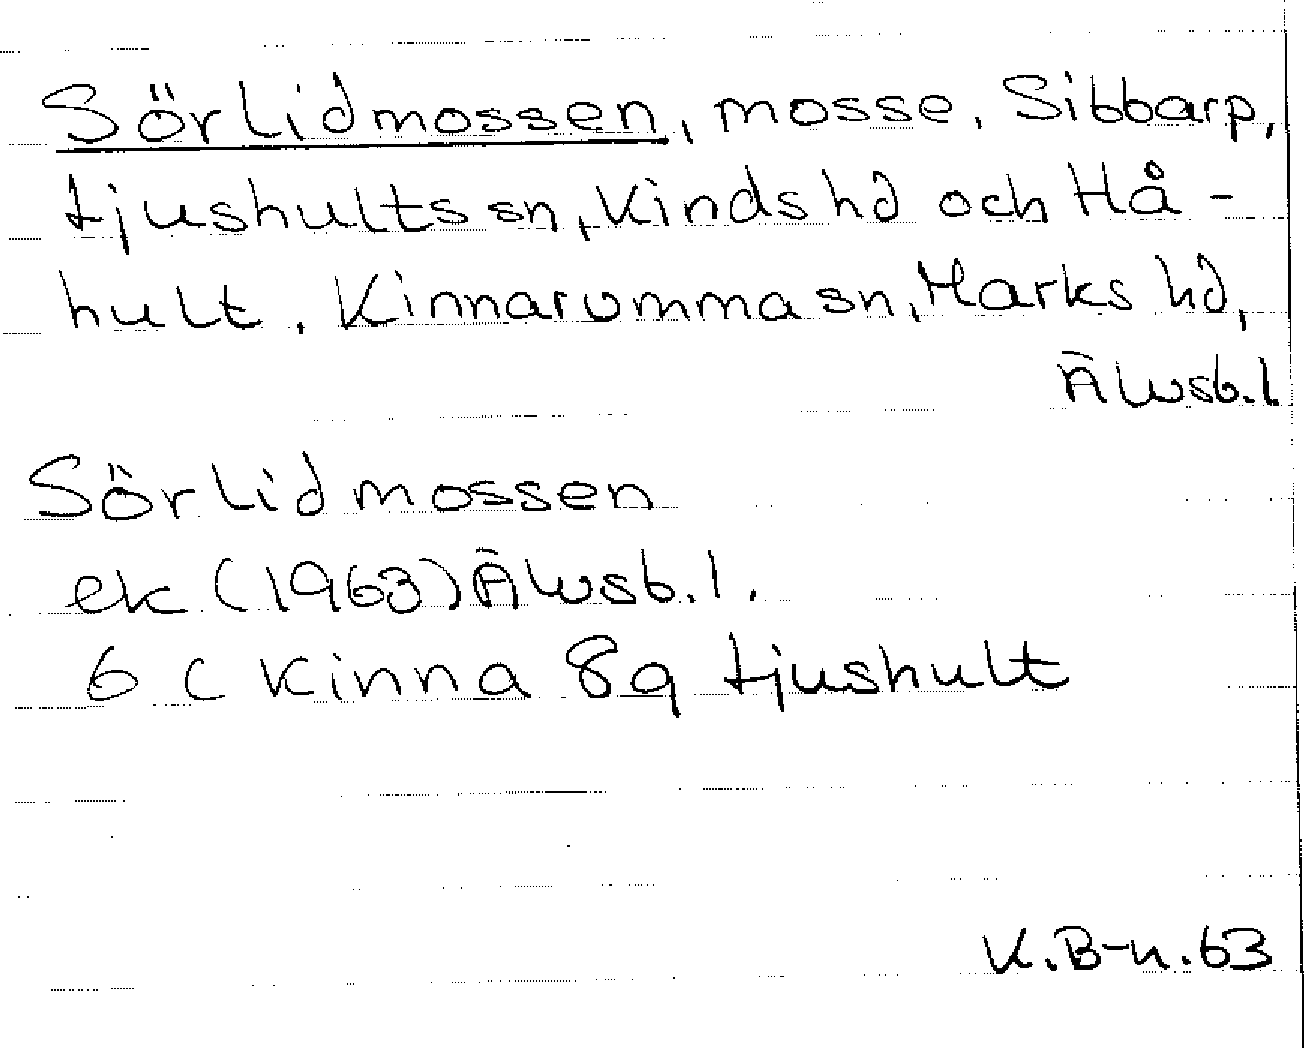 Sörlidmossen, mosse, Sibbarp,
Ljushults sn, Kinds hd och Hå-
hult, Kinnarumma sn, Marks hd,
Älvsb. l
Sörlidmossen
ek (1963) Älvsb. l.
6 C Kinna 8g Ljushult
K.B-n. 63